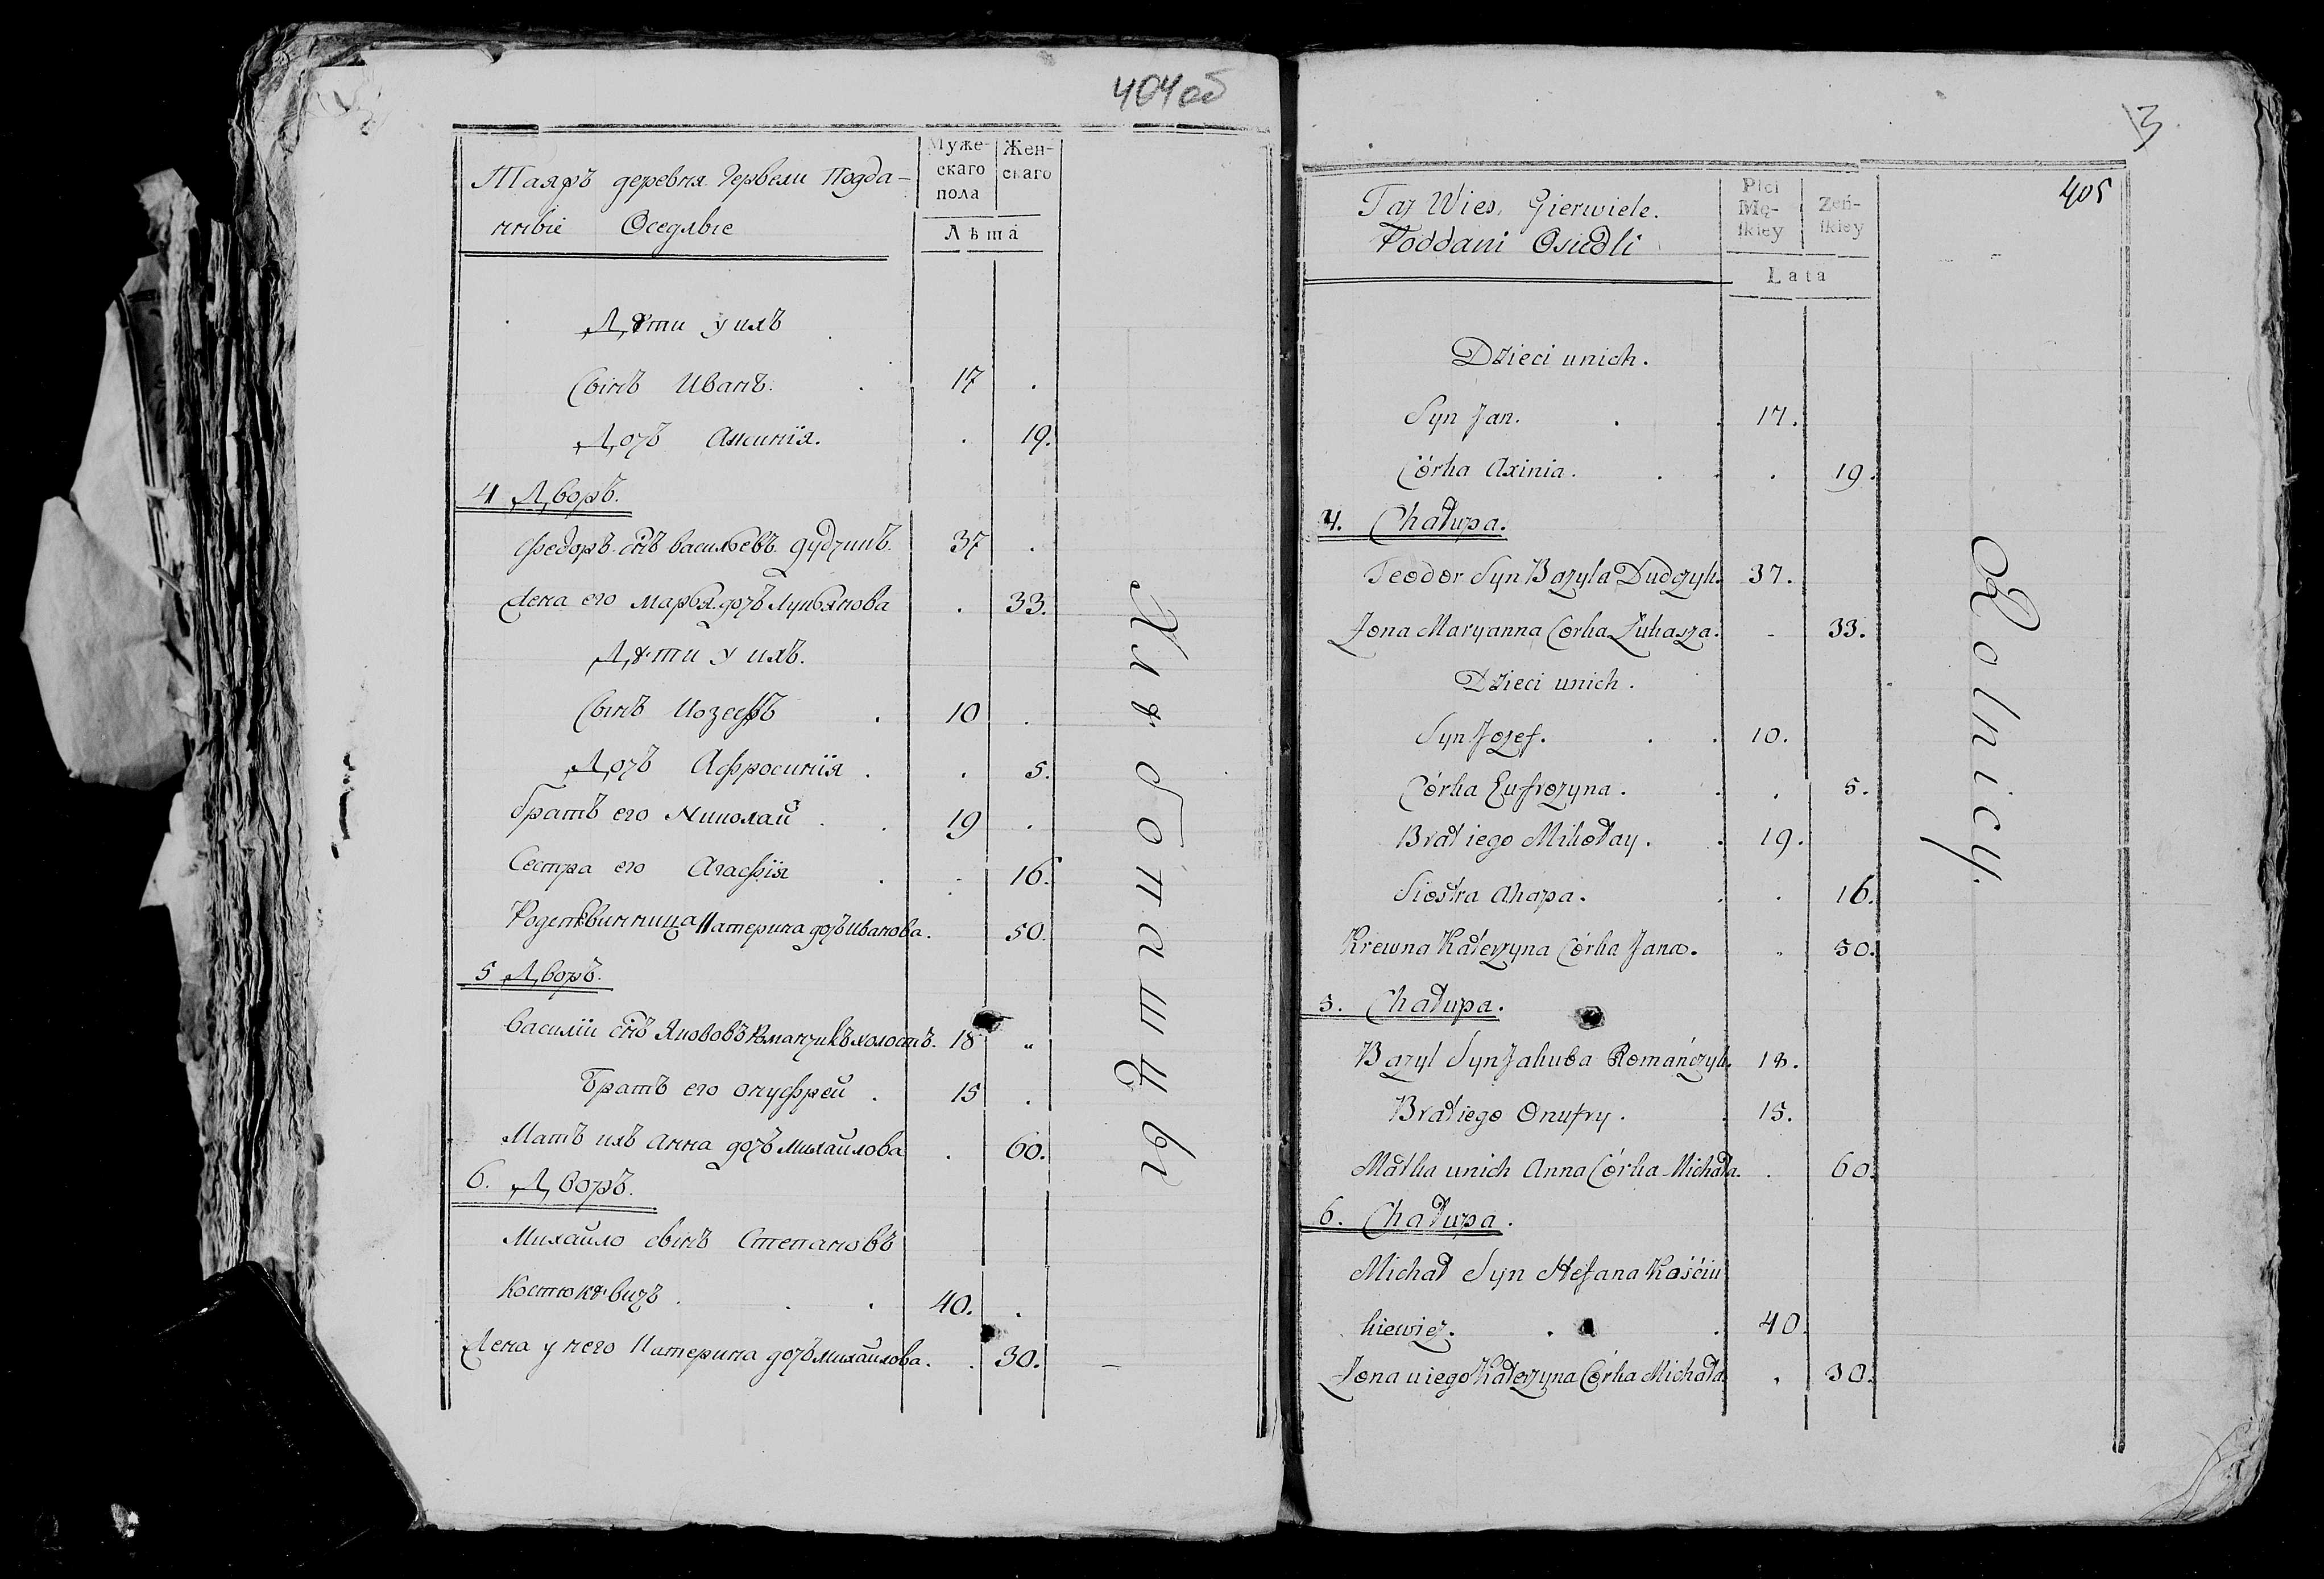 404об
Таяжъ деревня Гервели Подда-
нныіе Оседлые
Муже-
скаго
пола
Жен-
скаго
Лѣта
Дѣти у ихъ
Сынъ Иванъ. 17 .
Дочь Аксинія. . 19.
4 Дворъ.
Федоръ снъ васильевъ дудчикъ. 37 .
Жена его марья дочь Лукьянова . 33.
Дѣти у ихъ.
Сынъ Иозефъ . 10 .
Дочь Афросинія . . 5.
братъ его Николай . . 19 .
Сестра его Агафія . . 16.
Катерина дочь Иванова. 50.
5 Дворъ.
Василіи снъ Якововъ Романчикъ холостъ. 18 "
Братъ его онуфрей . 15 .
Мать ихъ анна дочь михаилова . 60.
6. Дворъ.
Михайло сынъ Степановъ
Костюкѣвичъ . . . 40. .
Жена у него Катерина дочь михаилова. . 30. –
Хлѣбопашцы
13
405
Taz Wies, Gierwiele.
Poddani Osiedli
Płci
Mę-
ſkiey
Żeń-
ſkiey
Lata
Dzieci unich.
Syn Jan. . . 17.
Córka Axinia. . . . 19.
4. Chałupa.
Teodor Syn Bazyla Dudczyk. 37.
Zona Maryanna Corka Łukasza. - 33.
Dzieci unich.
Syn Jozef. . . 10.
Córka Eufrozyna. . . 5.
Brat iego Mikołay. . 19.
Siostra Ahapa. . . 16.
Krewna Katerzyna Córka Jana. " 50.
5. Chałupa.
Bazyl Syn Jakuba Romańczyk. 18.
Brat iego Onufry. . 15.
Matka unich Anna Córka Michała. . 60.
6. Chałupa.
Michał Syn Stefana Kościu
kiewicz. . . 40.
Zona u iego Katerzyna Córka Michała . 30.
Rolnicy.